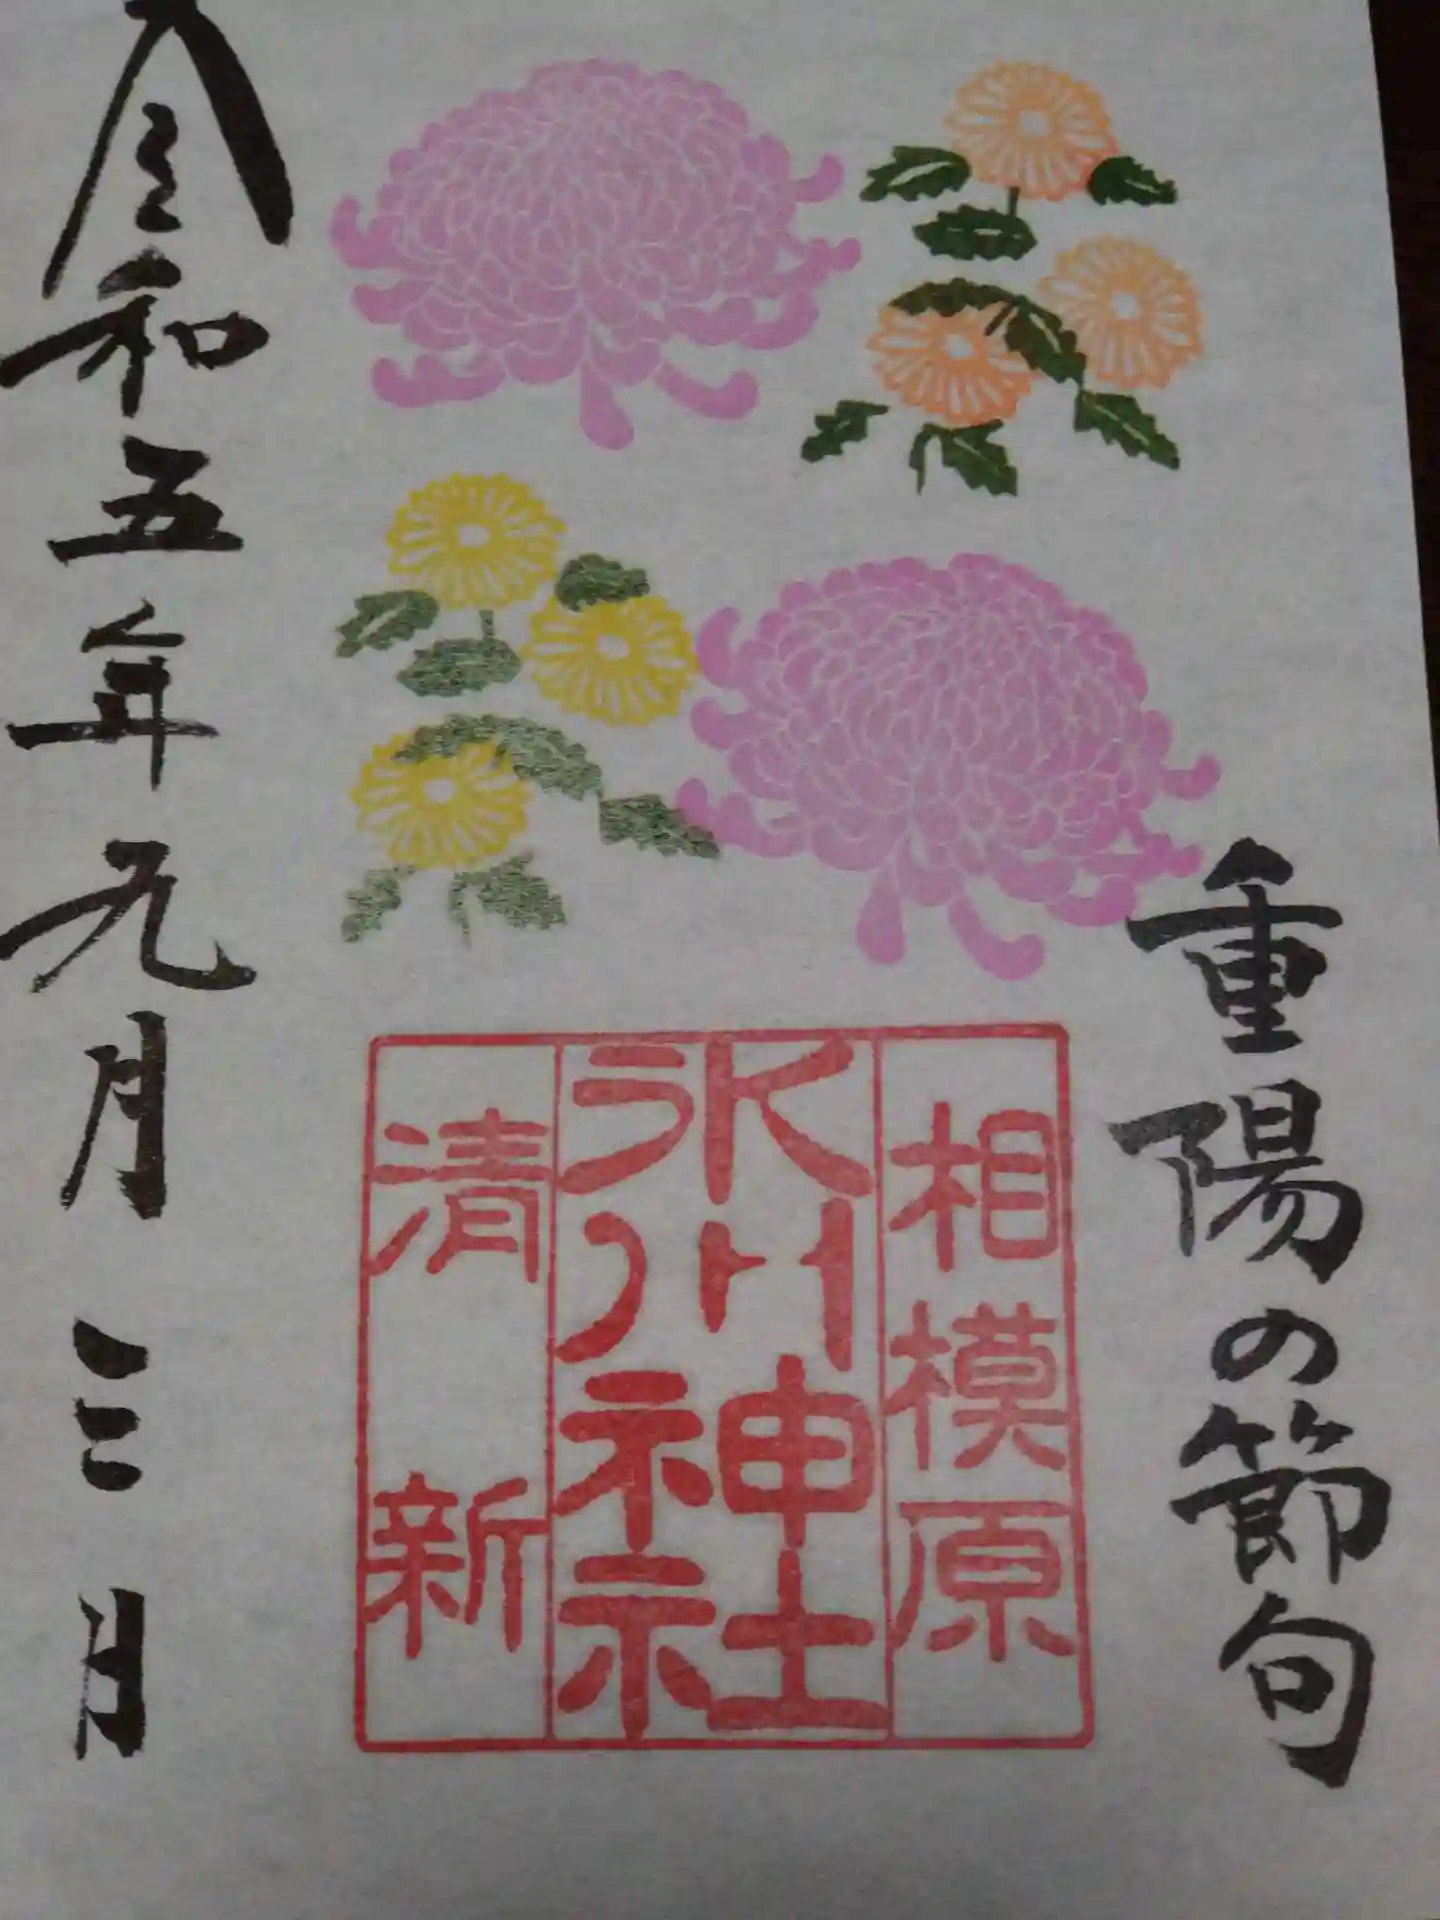 重陽の節句
相模原
氷川神社
清新
令和五年九月三日